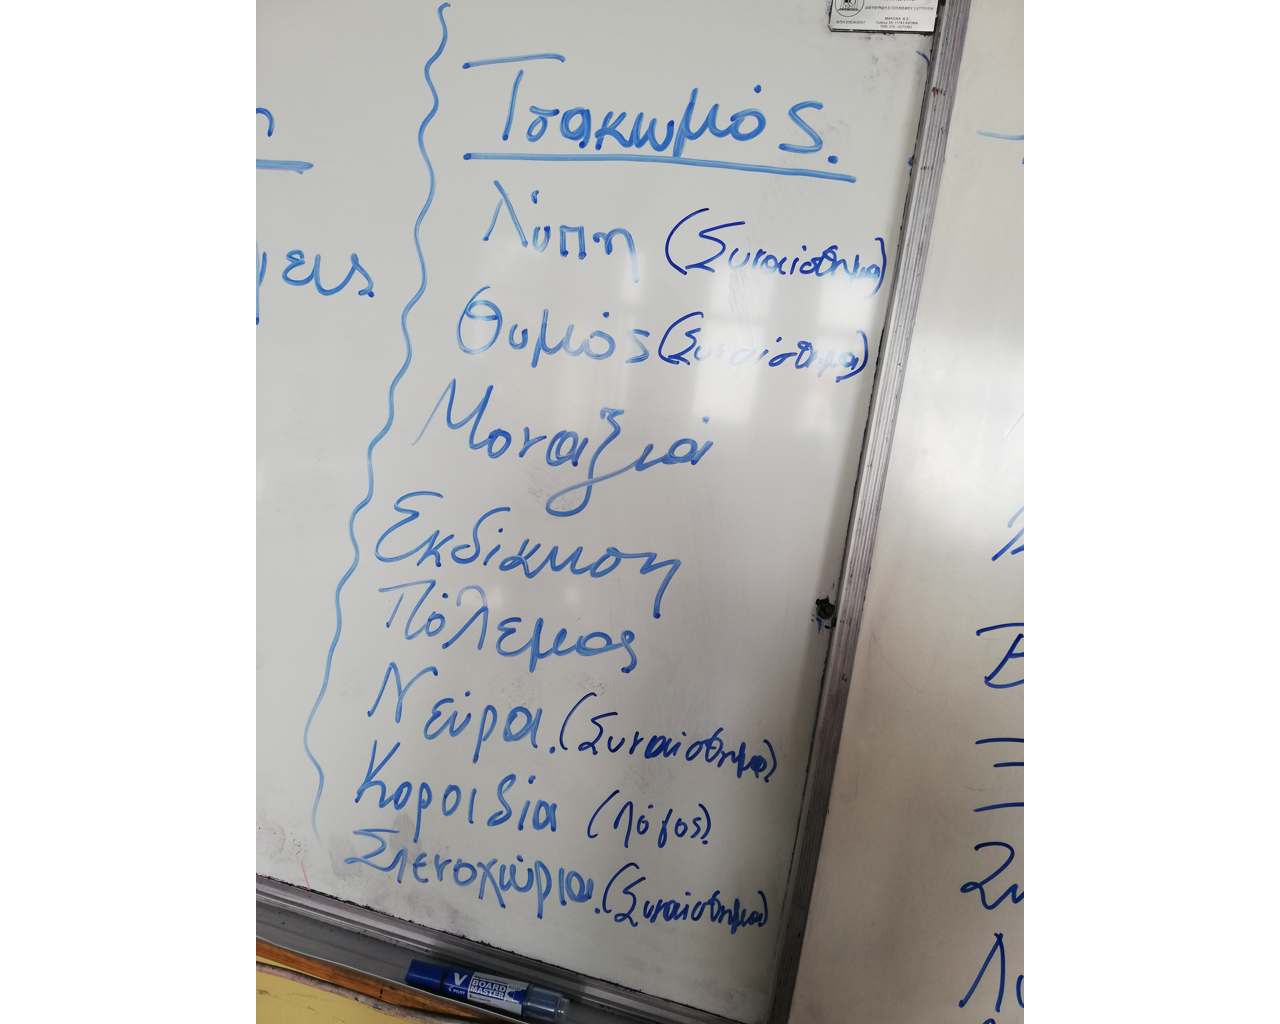 Τσακωμός.
Λύπη (Συναίσθημα)
Θυμός (Συναίσθημα)
Μοναξιά
Εκδίκηση
Πόλεμος
Νεύρα. (Συναίσθημα)
Κοροιδία (Λόγος)
Στενοχώρια. (Συναίσθημα)
V BOARD
MASTER
PILOT